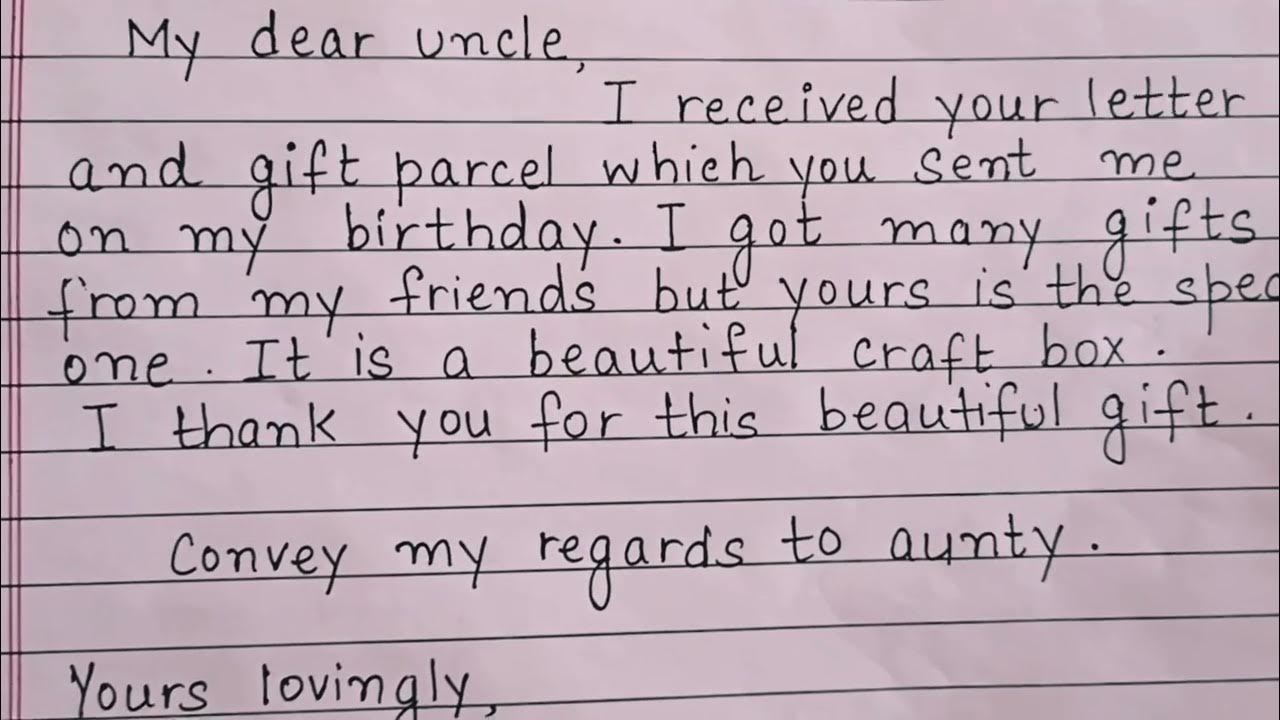 My dear uncle,
I received your letter
and gift parcel which you sent me
on my birthday. I got many gifts
from my friends but yours is the spec
one. It is a beautiful craft box.
I thank you for this beautiful gift.
Convey my regards to aunty.
Yours lovingly,